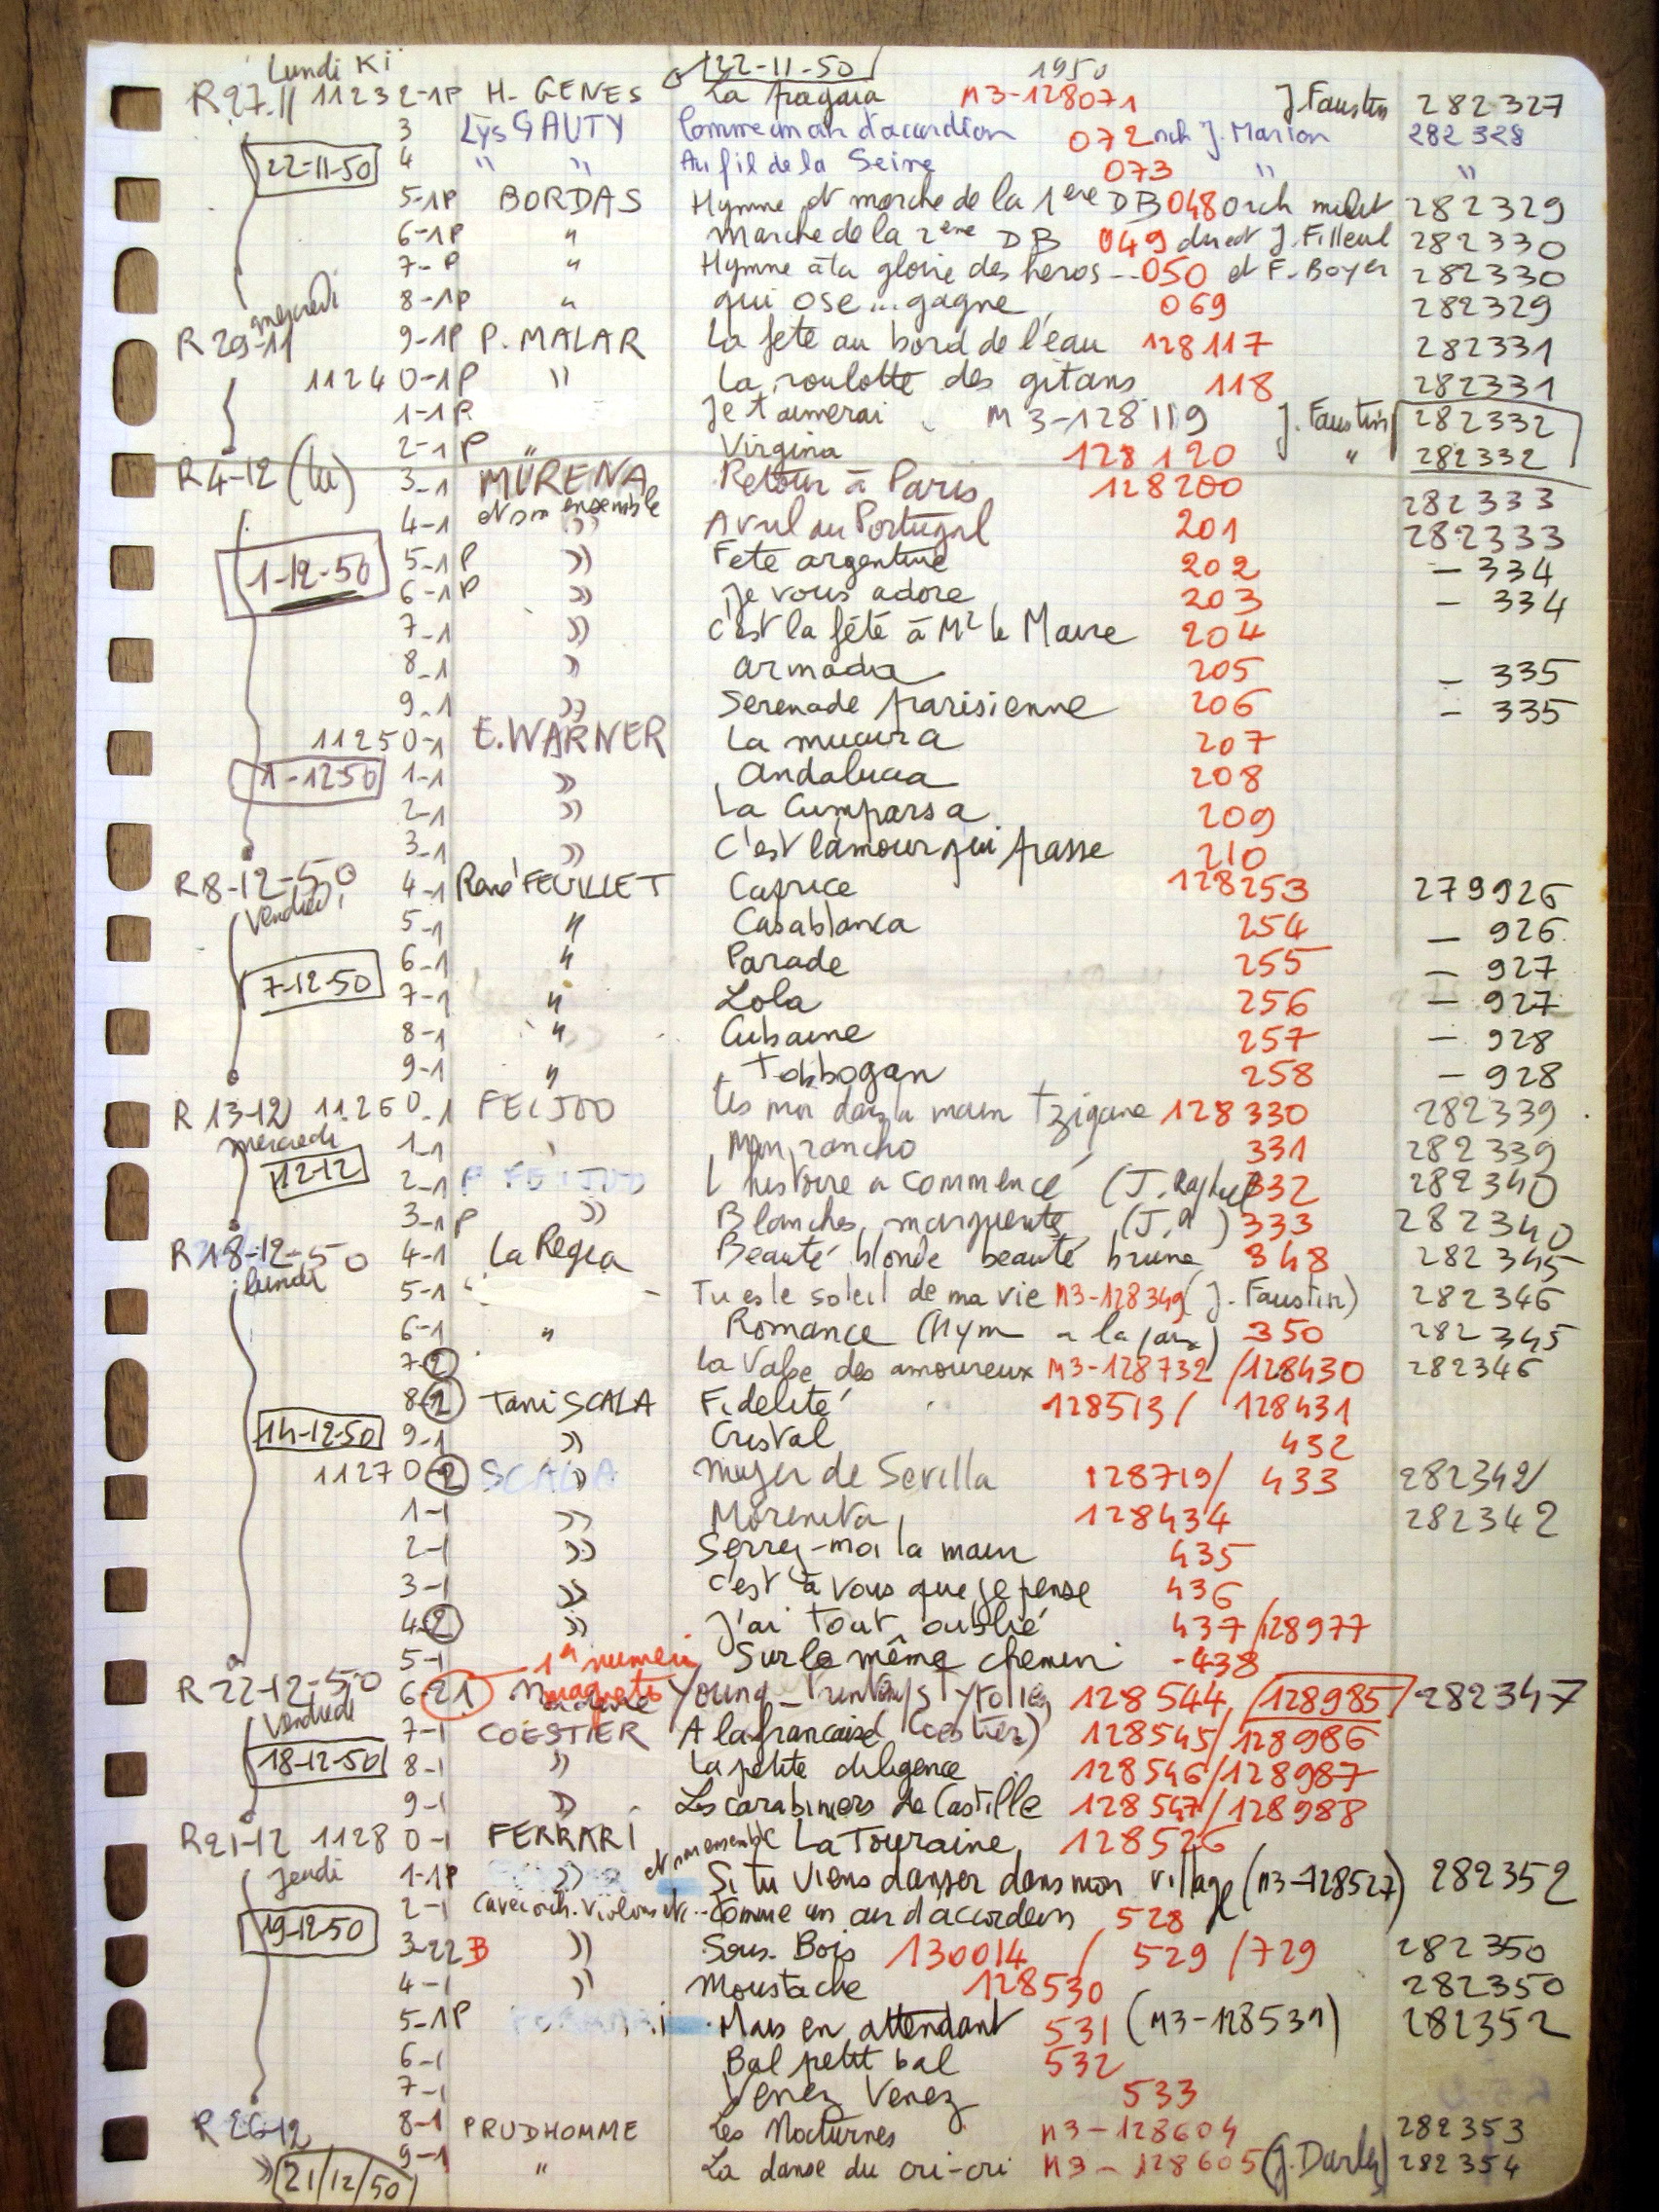 Lundi Ki 22-11-50 1950
R27.11 11232-1P H. GENES La M3-128071 J. Faustin 282327
3 Lys GAUTY Comme un air d'accordion 072 orch J. Marion 282328
22-11-50 4 " " Au fil de la Seine 073 " "
5-1P BORDAS Hymne et marche de la 1ere DB 048 Orch milit 282329
6-1P " marche de la 2ème DB 049 direct J. Filleul 282330
7-P " Hymne à la gloire des heros -- 050 et F. Boyer 282330
mercredi 8-1P " qui ose... gagne 069 282329
R29-11 9-1P P. MALAR La fete au bord de l'eau 128117 282331
11240-1P " La roulotte des gitans 118 282331
1-1P Je t'aimerai M3-128119 J. Faustin 282332
2-1P " Virgina 128120 " 282332
R4-12 (lu) 3-1 MURENA Retour à Paris 128200 282333
et son ensemble
4-1 " Avril au Portugal 201 282333
1-12-50 5-1P " Fete argentine 202 – 334
6-1P " Je vous adore 203 – 334
7-1 " c'est la fête à Mr le Maire 204
8-1 " armada 205 – 335
9-1 " Serenade parisienne 206 – 335
11250-1 E. WARNER La mucura 207
1-1250 1-1 " andalucia 208
2-1 " La Cumparsa 209
3-1 " C'est l'amour qui passe 210
R8-12-50 4-1 René FEUILLET Caprice 128253 279926
Vendredi 5-1 " Casablanca 254 – 926
6-1 " Parade 255 – 927
7-12-50 7-1 " Lola 256 – 927
8-1 " Cubaine 257 – 928
9-1 " Tobbogan 258 – 928
R13-12 11260-1 FEIJOO lis moi dans la main Tzigane 128330 282339
mercredi 1-1 " Mon rancho 331 282339
12-12 2-1 P FEIJOO L'histoire a commencé (J. Raphael 332 282340
3-1P " Blanches marguerite (J. R) 333 282340
R18-12-50 4-1 La Regia Beauté blonde beauté brune 348 282345
lundi 5-1 Tu es le soleil de ma vie M3-128349 (J. Faustin) 282346
6-1 " Romance 350 282345
7-2 La Valse des amoureux M3-128732 /128430 282346
8-2 Tani SCALA Fidelité 128513/ 128431
14-12-50 9-1 " Cristal 432
11270-2 SCALA " mujer de Sevilla 128719/ 433 282342/
1-1 " Morenita 128434 282342
2-1 " Serrez-moi la main 435
3-1 " c'est à vous que je pense 436
4-2 " J'ai tout oublié 437/128977
5-1 1er numeri Sur le même chemin -438
R22-12-50 6-21 magneto Young 128544 /128985 282347
Vendredi 7-1 COESTIER A la francaise (Coestier) 128545/128986
18-12-50 8-1 " La petite diligence 128546/128987
9-1 " Les carabiniers de Castille 128547/128988
R21-12 11280-1 FERRARI et son ensemble La Touraine 128526
jeudi 1-1P " Si tu viens danser dans mon village (M3-128527) 282352
2-1 (avec orch. violons etc.. Comme un air d'accordeon 528
19-12-50 3-22B " Sous-Bois 130014 / 529 /729 282350
4-1 " Moustache 128530 282350
5-1P Mais en attendant 531 (M3-128531) 282352
6-1 Bal petit bal 532
7-1 Venez Venez 533
R26-12 8-1 PRUDHOMME Les Nocturnes M3-128604 282353
9-1 " La danse du cri-cri M3-128605 (J. Darly) 282354
21/12/50